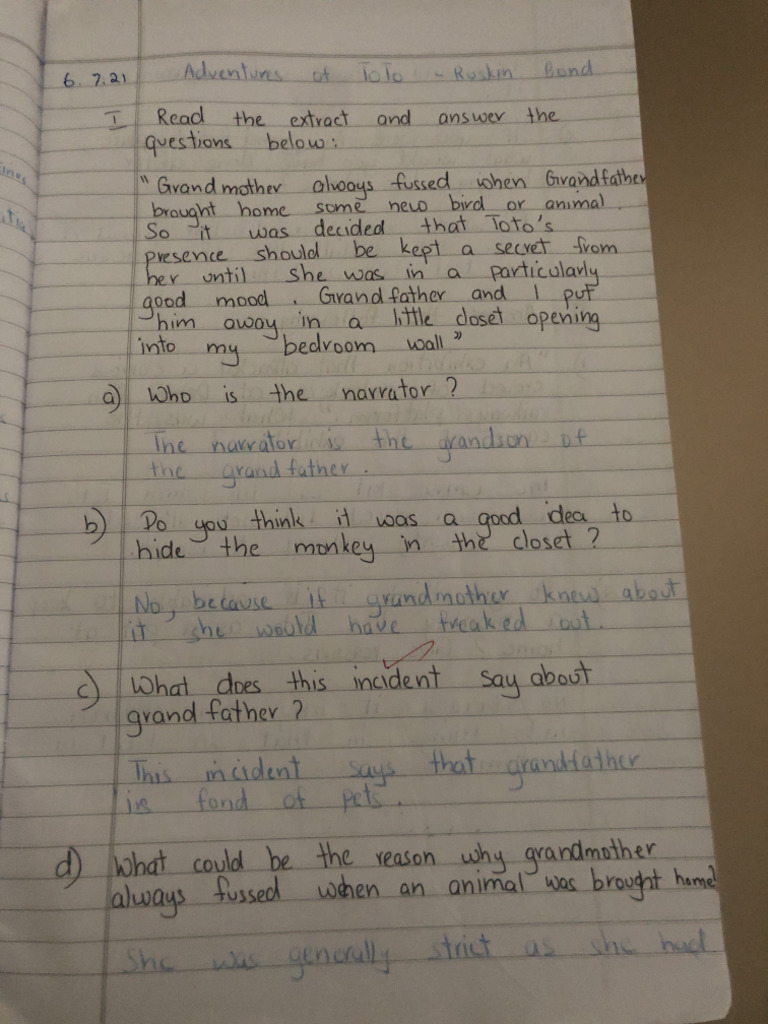 6.7.21 Adventures of ToTo - Ruskin Bond
I Read the extract and answer the
questions below:
"Grandmother always fussed when Grandfather
brought home some new bird or animal.
So it was decided that Toto's
presence should be kept a secret from
her until she was in a particularly
good mood. Grandfather and I put
him away in a little closet opening
into my bedroom wall"
a) Who is the narrator?
The narrator is the grandson of
the grandfather.
b) Do you think it was a good idea to
hide the monkey in the closet?
No, because if grandmother knew about
it she would have freaked out.
c) What does this incident say about
grandfather?
This incident says that grandfather
is fond of pets.
d) What could be the reason why grandmother
always fussed when an animal was brought home?
She was generally strict as she had